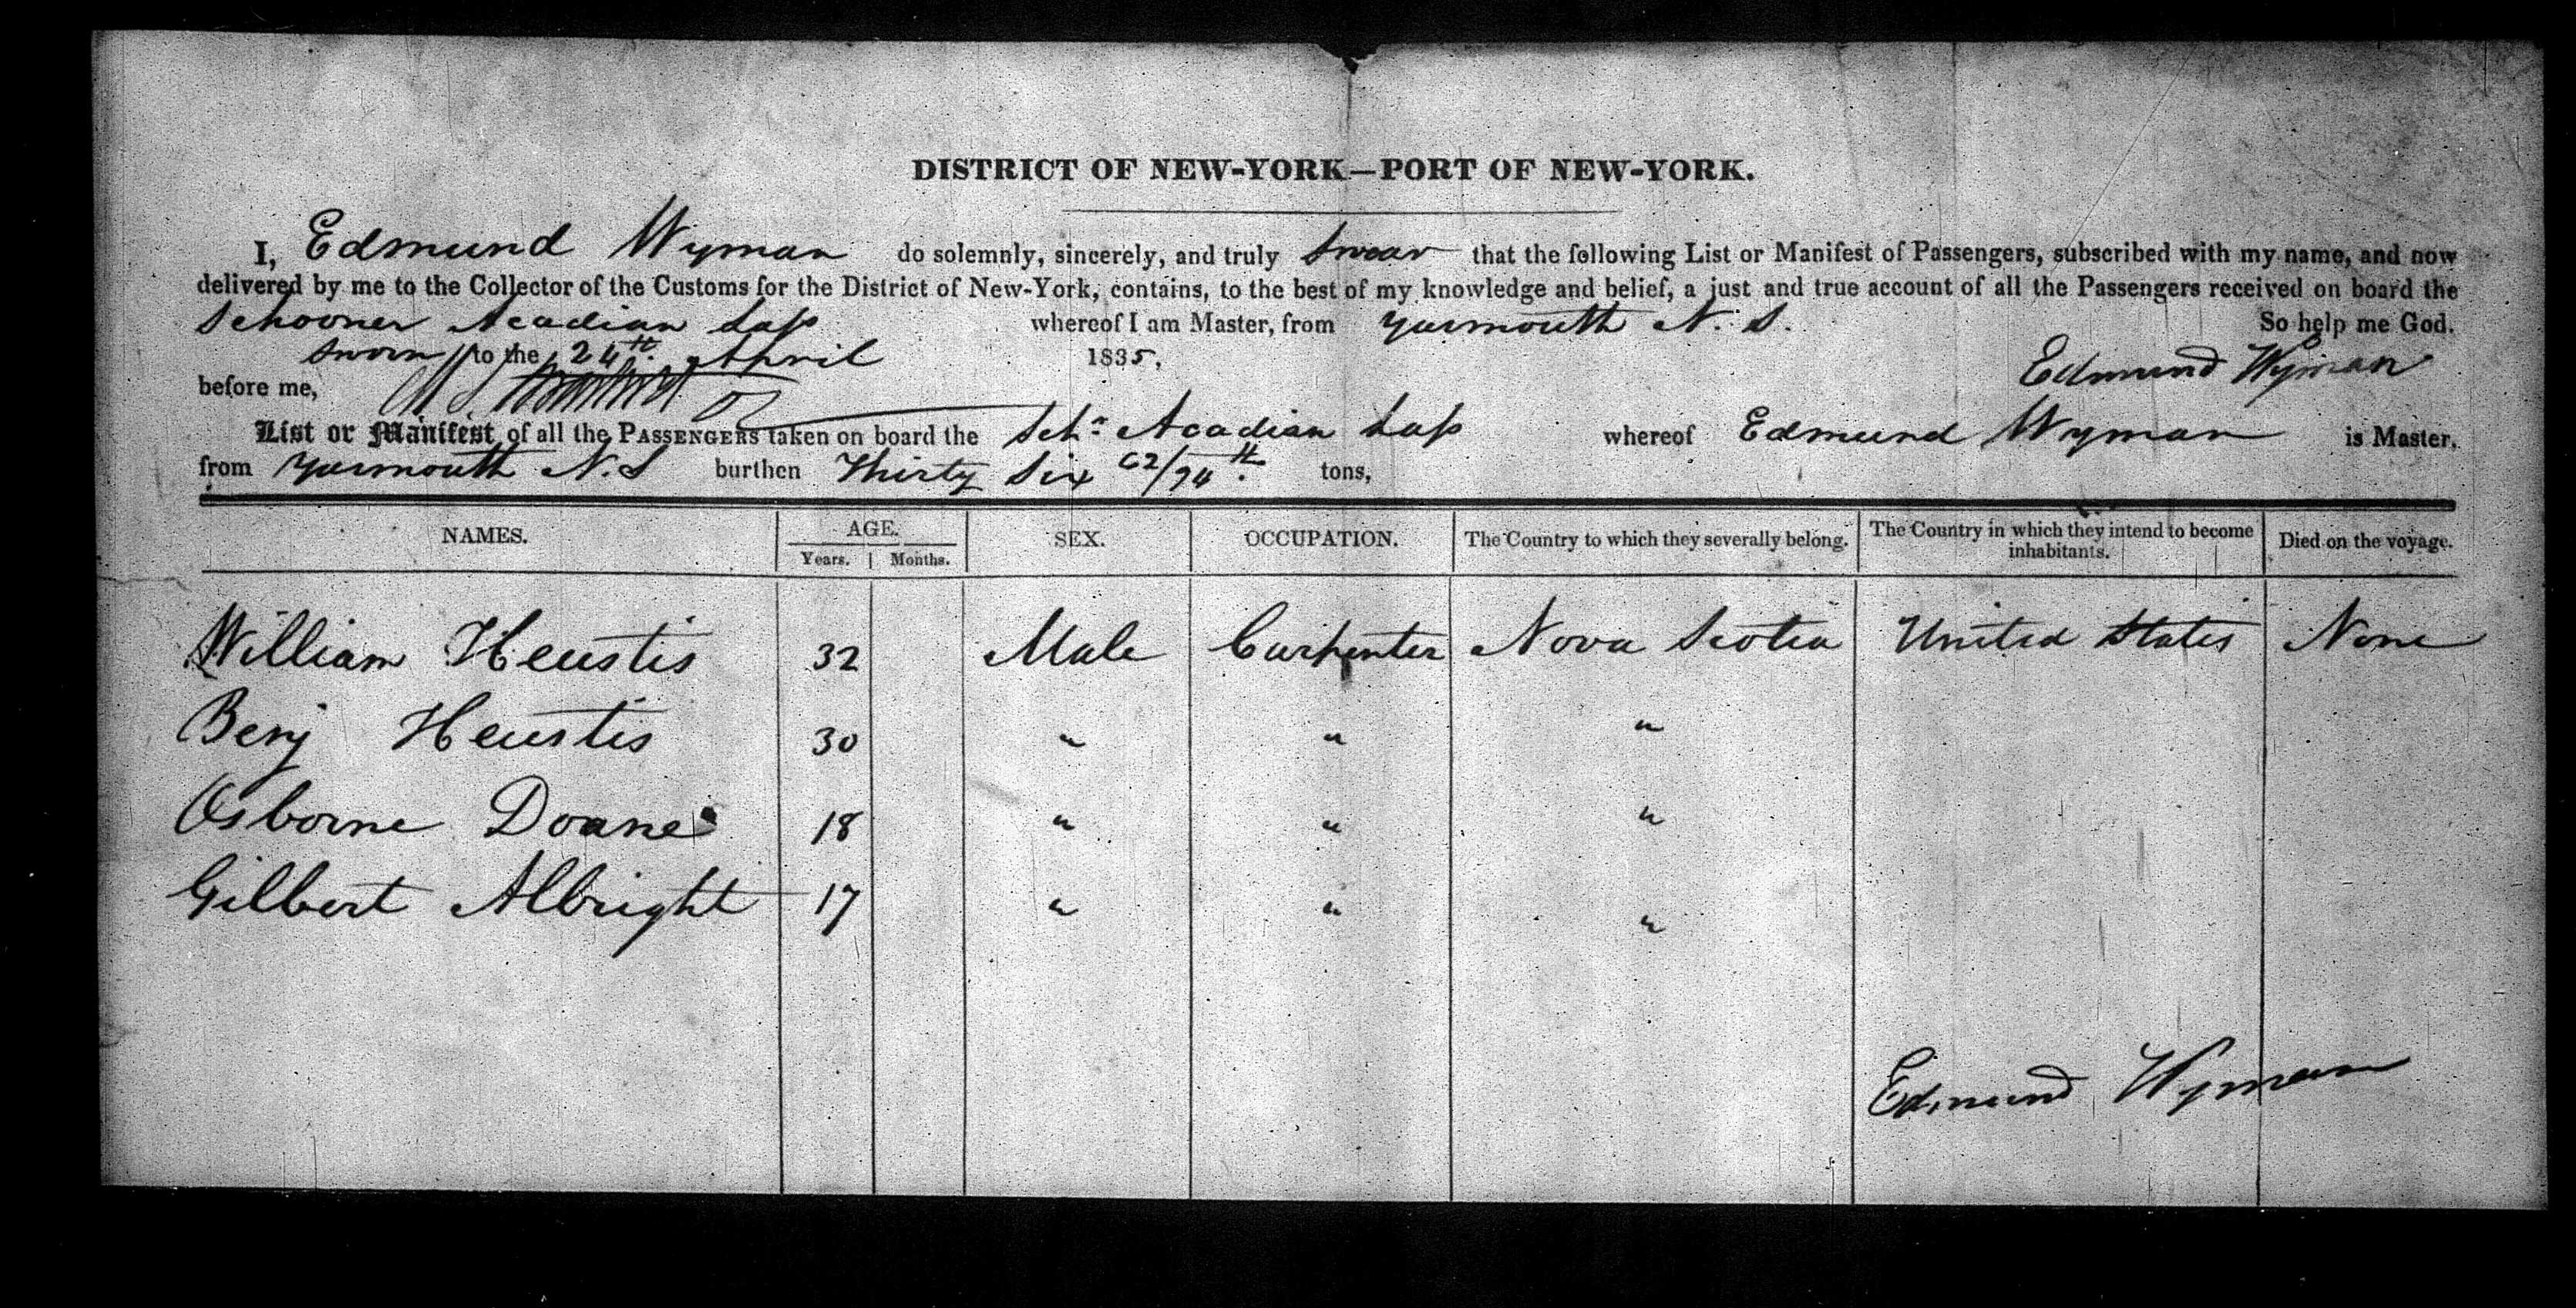 DISTRICT OF NEW-YORK—PORT OF NEW-YORK.
I, Edmund Wyman do solemnly, sincerely, and truly Swear that the following List or Manifest of Passengers, subscribed with my name, and now
delivered by me to the Collector of the Customs for the District of New-York, contains, to the best of my knowledge and belief, a just and true account of all the Passengers received on board the
Schooner Acadian Lass whereof I am Master, from Yarmouth N. S. So help me God.
Sworn to the 24th April 1835,
Edmund Wyman
before me,
List or Manifest of all the PASSENGERS taken on board the Schr Acadian Lass whereof Edmund Wyman is Master,
from Yarmouth N.S burthen Thirty Six 62/94th tons,
NAMES. AGE. SEX. OCCUPATION. The Country to which they severally belong. The Country in which they intend to become inhabitants. Died on the voyage.
Years. Months.
William Heustis 32 Male Carpenter Nova Scotia United States None
Benj Heustis 30 " " "
Osborne Doane 18 " " "
Gilbert Albright 17 " " "
Edmund Wyman